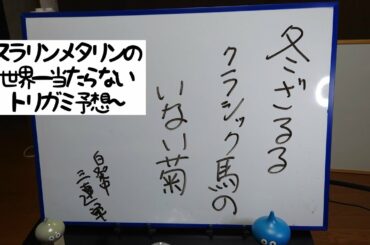 スラリンメタリンの
世界一当たらない
トリガミ予想〜
冬ざるる
クラシック馬の
いない菊